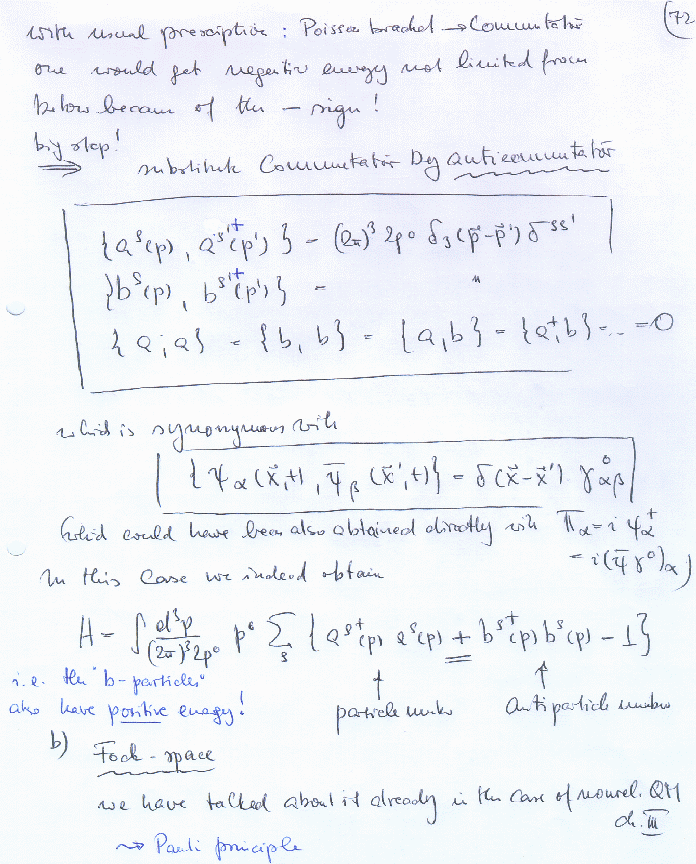 72
with usual prescription : Poisson bracket → Commutator
one would get negative energy not limited from
below because of the – sign !
big step!
⟹ substitute Commutator by anticommutator
{a^s(p), a^{s'+}(p')} = (2π)³ 2p⁰ δ₃(p⃗-p⃗') δ^{ss'}
{b^s(p), b^{s'+}(p')} = "
{a, a} = {b, b} = {a, b} = {a⁺, b} = .. = 0
which is synonymous with
{ψ_α(x⃗,t), ψ̄_β(x⃗',t)} = δ(x⃗-x⃗') γ⁰_{αβ}
(which could have been also obtained directly with Π_α = i ψ_α⁺
= i(ψ̄γ⁰)_α)
In this case we indeed obtain
H = ∫ d³p/((2π)³2p⁰) p⁰ Σ_s {a^{s+}(p) a^s(p) + b^{s+}(p) b^s(p) – 1}
i.e. the "b-particles"
also have positive energy!
↑ particle number
↑ antiparticle number
b) Fock-space
we have talked about it already in the case of nonrel. QM
ch. III
⇝ Pauli principle